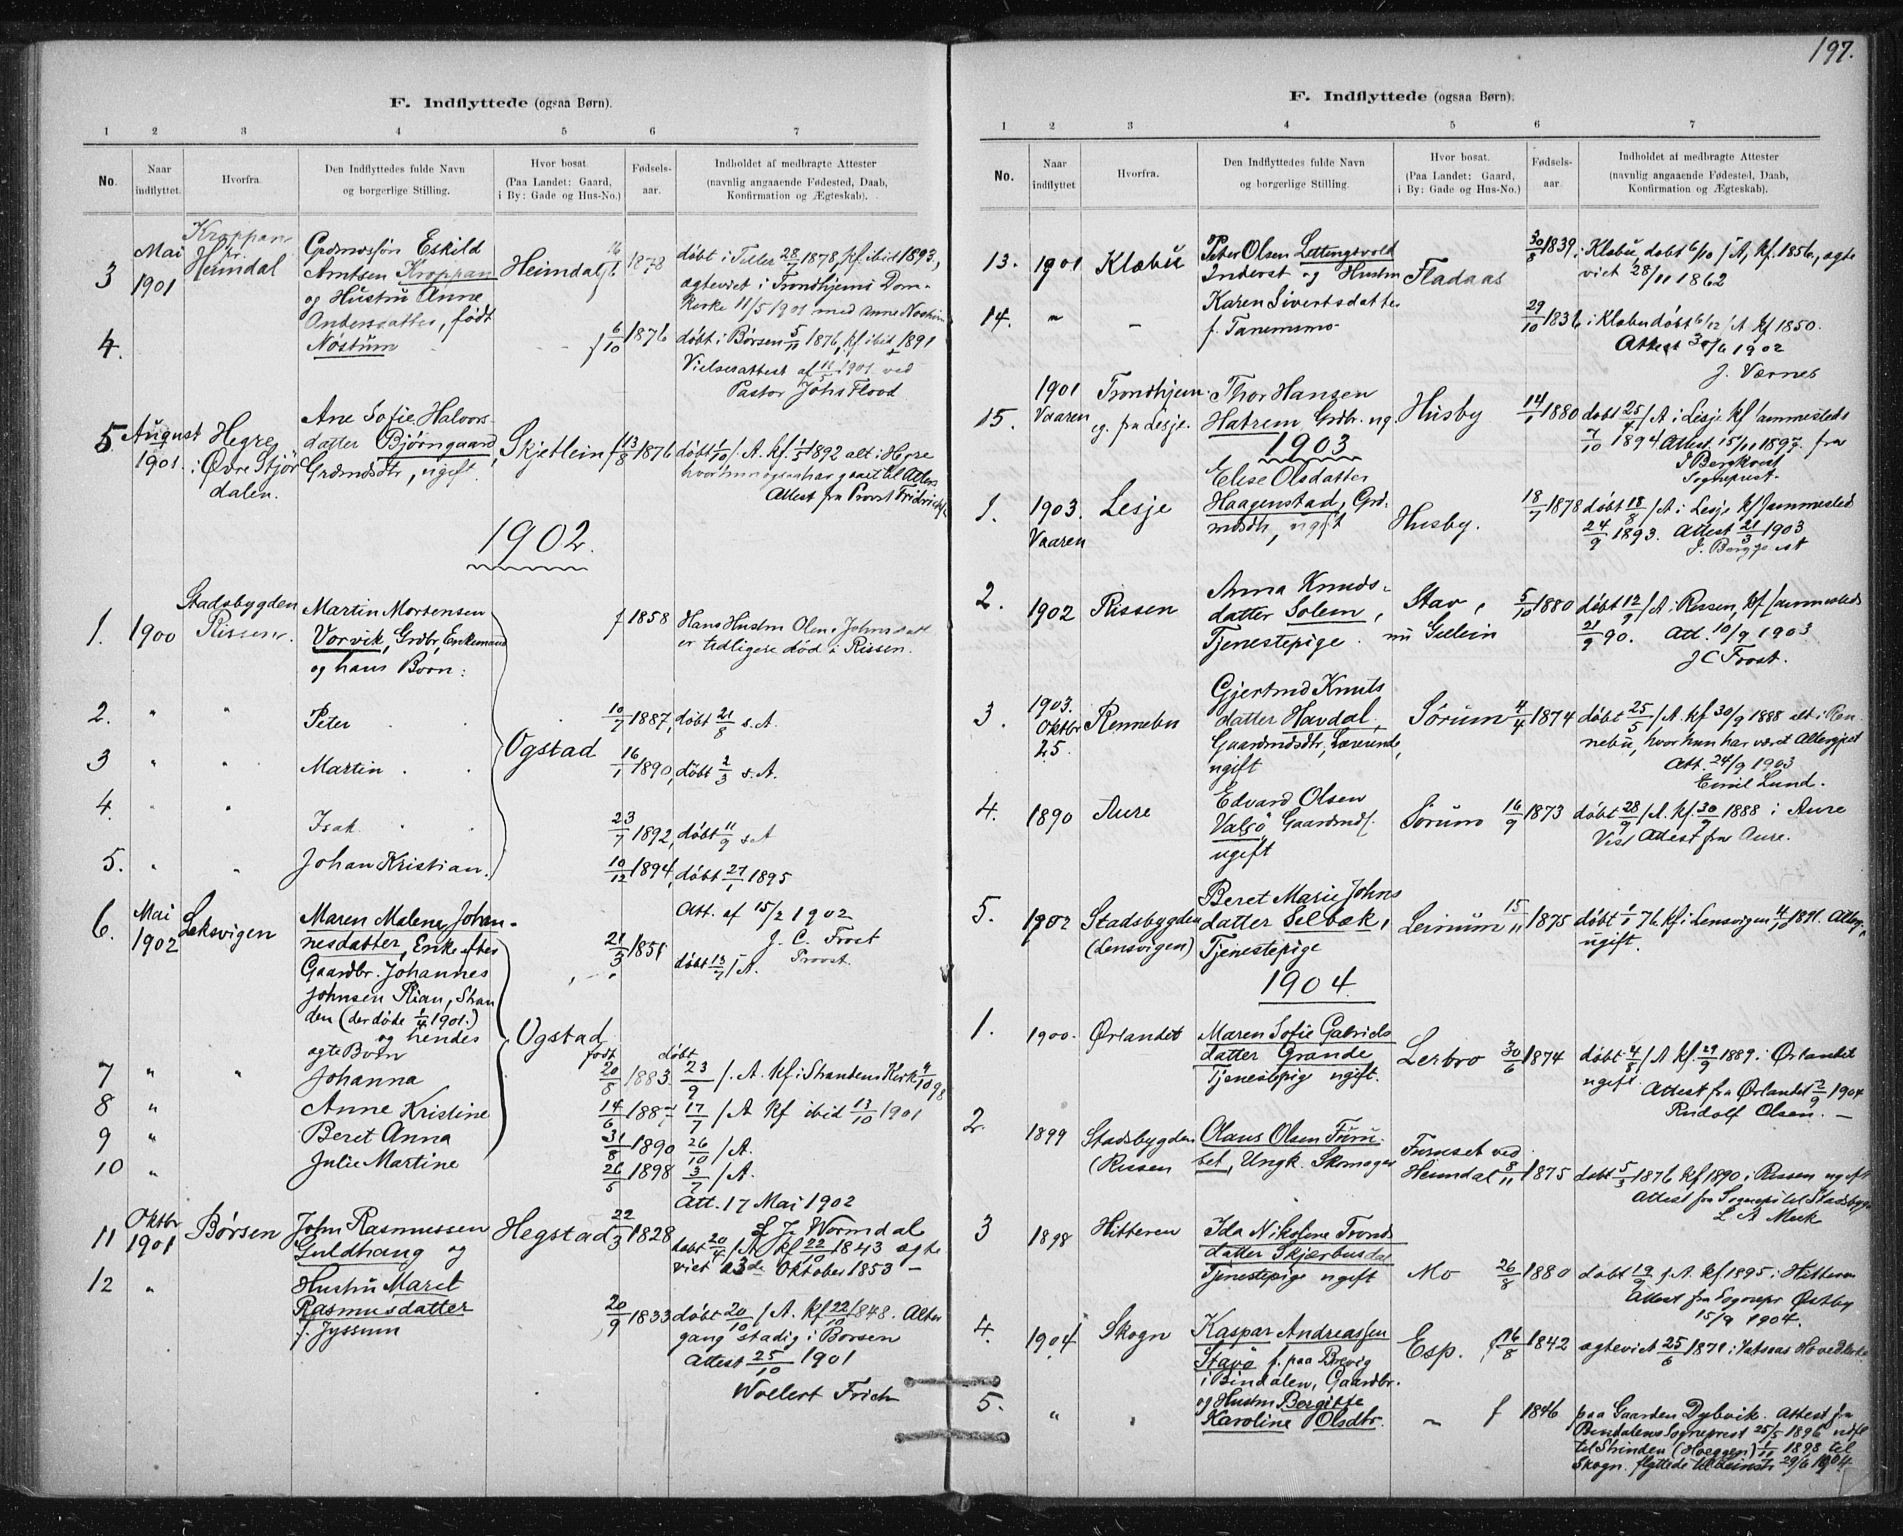 F. Indflyttede (ogsaa Børn).
1 2 3 4 5 6 7
No. Naar indflyttet. Hvorfra. Den Indflyttedes fulde Navn og borgerlige Stilling. Hvor bosat (Paa Landet: Gaard, i By: Gade og Hus-No.) Fødsels-aar. Indholdet af medbragte Attester (navnlig angaaende Fødested, Daab, Konfirmation og Ægteskab).
3 Mai 1901 Kroppan pr. Heimdal
Eskild
Arntsen Kroppan
og Hustru Anne
Andersdatter, født
Nøstum
Heimdal 1878
døbt i Tiller 28/7 1878, kf. ibid 1893,
ægteviet i Trondhjems Dom-
kirke 11/5 1901 med Anne
4. f 6/10 1876 døbt i Børsen 5/11 1876, kf ibid 1891
Vielsesattest af 11/5 1901 ved
Pastor Johs Flood
5. August 1901. Hegre i Øvre Stjør
dalen.
Ane Sofie Halvors-
datter Bjørngaard,
Grdmdsdtr, ugift.
Skjetlein f 13/8 1876 døbt 1/10 s. A. kf. 1/5 1892 alt i Hegre
hvor hun ogsaa har gaaet til Alters
Attest fra Provst
1902.
1. 1900 Stadsbygden Rissen.
Martin Mortensen
Vorvik, Grdbr, Enkemand
og hans Børn:
f 1858 Hans Hustru Olena Johnsdatt
er tidligere død i Rissen.
2. " " Peter 10/7 1887, døbt 21/8 s. A.
Ogstad
3 " " Martin 16/1 1890, døbt 2/3 s. A.
4. " " Isak 23/7 1892, døbt 11/9 s A
5. " " Johan Kristian. 10/12 1894, døbt 27/1 1895
Att. af 15/2 1902
J. C. Frost
Provst.
6. Mai 1902 Leksvigen
Maren Malene Johan-
nesdatter, Enke efter
Gaardbr. Johannes
Johnsen Rian, Stran
den (der døde 1/4 1901.)
og hendes
ægte Børn
21/3 døbt 13/ s. A.
Ogstad
født døbt
7 " " Johanna 20/8 1883. 23/9 s. A. kf. i Strandens Kirke 9/10 98
8 " Anne Kristine 14/6 1887 17/7 s. A kf ibid 13/10 1901
9 " Beret Anna 31/8 1890 26/10 s. A.
10 " Julie Martine 26/5 1898 3/7 s. A.
Att. 17 Mai 1902
J. Wormdal
11 Oktbr 1901 Børsen
John Rasmussen
Guldhaug og
Hegstad 22/3 1828 døbt 20/4 s. A kf 22/10 1843 ægte
viet 23de Oktober 1853 —
12 " Hustru Maret
Rasmusdatter
f. Jyssum
20/9 1833 døbt 20/10 s. A. kf 22/10 1848. Alter
gang stadig i Børsen
Attest 25/10 1901
Wollert Frich
197.
F. Indflyttede (ogsaa Børn).
1 2 3 4 5 6 7
No. Naar indflyttet Hvorfra. Den Indflyttedes fulde Navn og borgerlige Stilling. Hvor bosat. (Paa Landet: Gaard, i By: Gade og Hus-No.) Fødsels-aar. Indholdet af medbragte Attester (navnlig angaaende Fødested, Daab, Konfirmation og Ægteskab).
13. 1901 Klæbu
Peter Olsen Lettingsvold
Inderst og Hustru
Fladaas 30/8 1839, i Klæbu, døbt 6/10 s. A, kf. 1856, ægte
viet 28/11 1862
14. " — Karen Sivertsdatter
f. Tanemsmo
29/10 1836 i Klæbu døbt 6/12 s. A kf 1850.
Attest 30/6 1902
J. Værnes
15. 1901 Vaaren Trondhjem eg. fra Lesje
Thor Hansen
Hatrem, Grdbr. ug.
Husby 14/1 1880 døbt 25/4 s. A i Lesje kf sammesteds
7/10 1894 Attest 15/11 1897 fra
Sogneprest.
1903
1. 1903. Vaaren Lesje
Elise Olsdatter
Haagenstad, Grd.
mdsdtr, ugift
Husby. 18/7 1878 døbt 18/8 s. A. i Lesje kf sammesteds
24/9 1893. Attest 21/3 1903
2. 1902 Rissen
Anna Knuds-
datter Solem,
Tjenestepige.
Stav,
nu
5/10 1880 døbt 12/9 s. A i Rissen, kf sammesteds
21/9 90. Att. 10/9 1903
J C Frost.
3. 1903. Oktbr 25. Rennebu
Gjertrud Knuts
datter Havdal,
Gaardmdsdtr, Lærerinde,
ugift
Sørum 4/4 1874 døbt 25/5 s. A. kf 30/9 1888 alt i Ren
nebu, hvor hun har været Altergjest
Att. 24/9 1903
Emil Lund.
4. 1890 Aure
Edvard Olsen
Valsø, Gaardmds.
ugift
Sørum 16/9 1873 døbt 28/9 s. A. kf. 30/9 1888 i Aure
Vist Attest fra Aure.
5. 1902 Stadsbygden (Lensvigen)
Beret Marie Johns
datter Selbæk,
Tjenestepige
Leinum 15/11 1875 døbt 1/1 76 kf i Lensvigen 1891. Alterg.,
ugift.
1904.
1. 1900. Ørlandet
Maren Sofie Gabriels
datter Grande
Tjenestepig ugift.
Lerbro 30/6 1874 døbt 4/8 s. A kf. 29/9 1889 i Ørlandet
ugift. Attest fra Ørlandet 2/9 1904
Rudolf Olsen. —
2. 1899 Stadsbygden (Rissen
Olaus Olsen Furu-
bet, Ungk. Skomager
Furuset ved
Heimdal 8/11 1875 døbt 5/3 1876 kf 1890 i Rissen ugift
Attest fra Sognepr til Stadsbygd
L A Mock
3 1898 Hitteren
Ida Nikoline Tronds
datter Skjærbusdal
Tjenestepige ugift
Mo 26/8 1880 døbt 19/9 s. A. kf 1895 i Hitteren
Attest fra Sognepr Østby
15/9 1904.
4. 1904 Skogn
Kaspar Andreassen
Stavø f. paa Brevig
i Bindalen, Gaardbr.
Esp. f 16/8 1842 ægteviet 25/6 1871 i Vatsaas Hovedkirke
5. " og Hustru Bergitte
Karoline Olsdtr.
— f 1846 paa Gaarden Dybvik. Attest fra
Bindalens Sogneprest 25/5 1896 udfl
til Strinden (Hoeggen) 1/11 1898 til
Skogn. flyttede til Leinstr 29/6 1904.